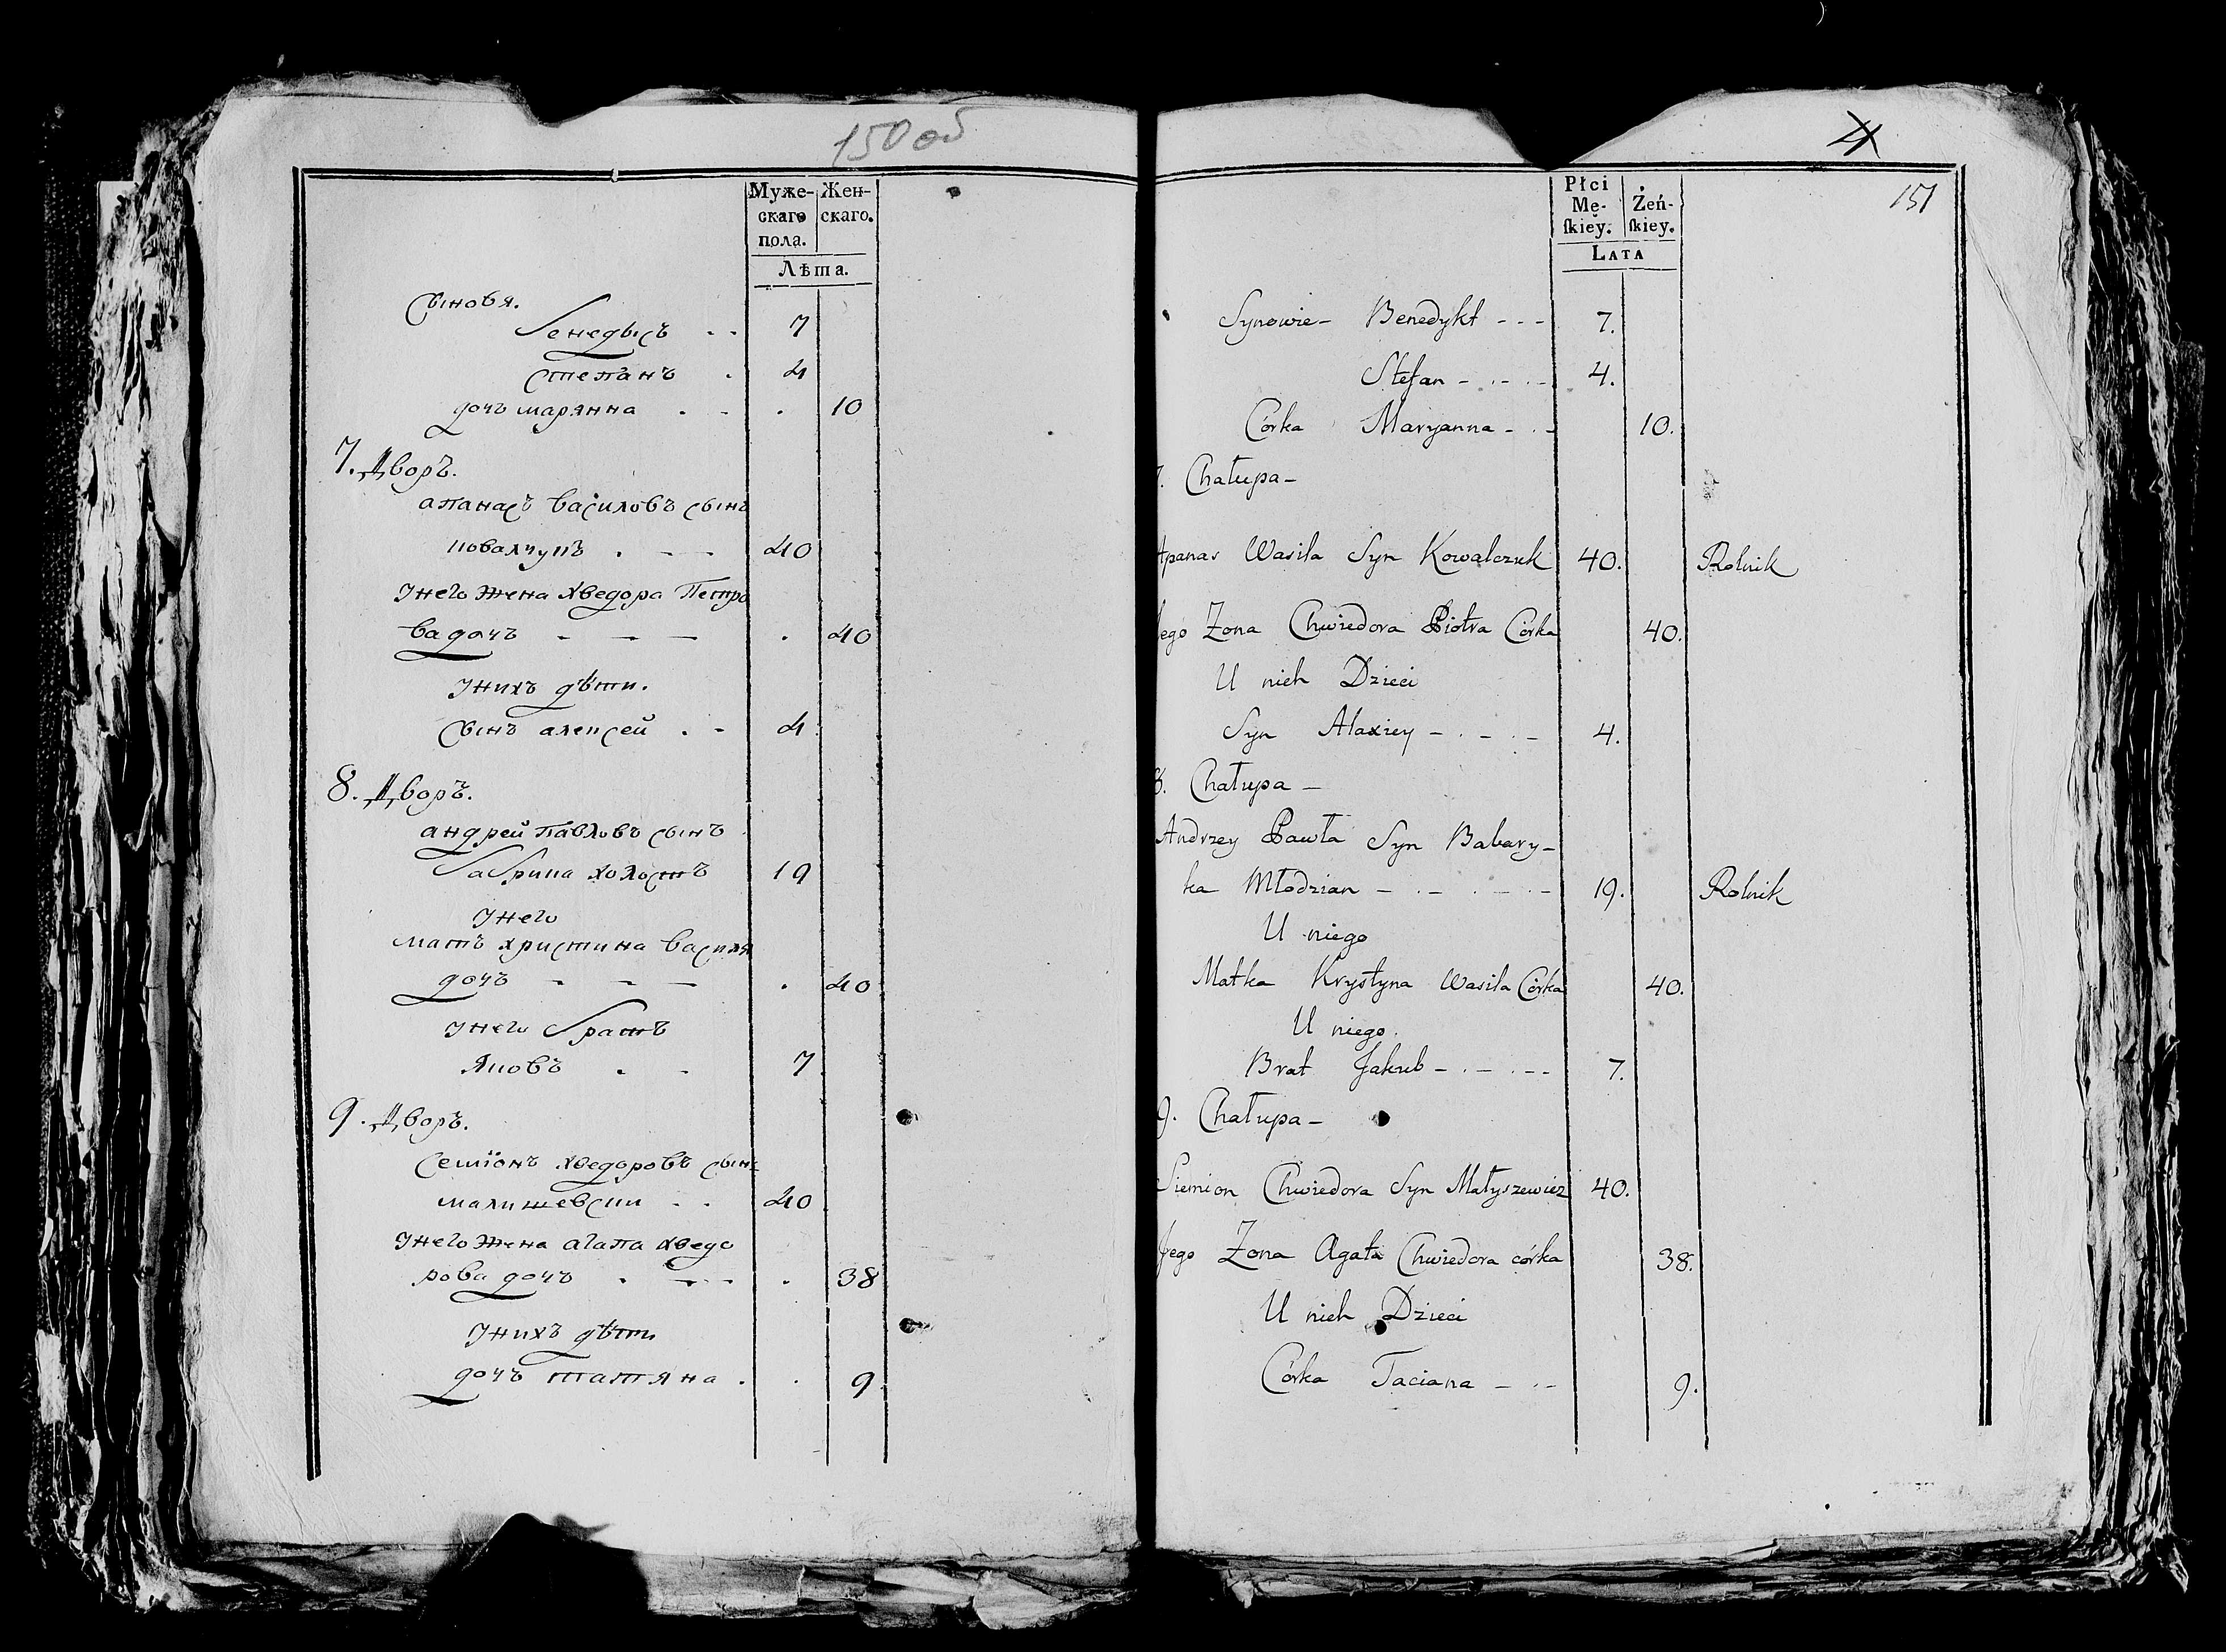 150 об
Муже- Жен-
скаго скаго.
пола.
Лѣта.
Сыновя.
Бенедысъ - - 7
степанъ . 4
дочъ марянна . - . 10
7. Дворъ.
апанасъ василовъ сынъ
ковалчукъ . - - 40
У него жена хведора Петро
ва дочъ - - - . 40
У нихъ дѣти.
сынъ алексей . - 4
8. Дворъ.
андрей павловъ сынъ
Бабрика холостъ 19
У него
матъ христина василя
дочъ - - - . 40
У него братъ
Яковъ . - 7
9. Дворъ.
семіонъ хведоровъ сынъ
малишевски - . 40
У него жена агапа хведо
рова дочъ . - - . 38
У нихъ дѣти
дочъ татяна . . 9
4
151
Płci
Mę- Żeń-
skiey. skiey.
LATA
Synowie - Benedykt - - - 7.
Stefan - . - . - 4.
Córka Maryanna - . - 10.
7. Chałupa -
Apanas Wasila Syn Kowalczuk 40. Rolnik
Jego Zona Chwiedora Piotra Córka 40.
U nich Dzieci
Syn Alaxiey - . - . - 4.
8. Chałupa -
Andrzey Pawła Syn Babary-
ka Młodzian - . - . - . - 19. Rolnik
U niego
Matka Krystyna Wasila Córka 40.
U niego.
Brat Jakub - . - . - - 7.
9. Chałupa -
Siemion Chwiedora Syn Małyszewicz 40.
Jego Zona Agata Chwiedora córka 38.
U nich Dzieci
Córka Taciana - . - 9.